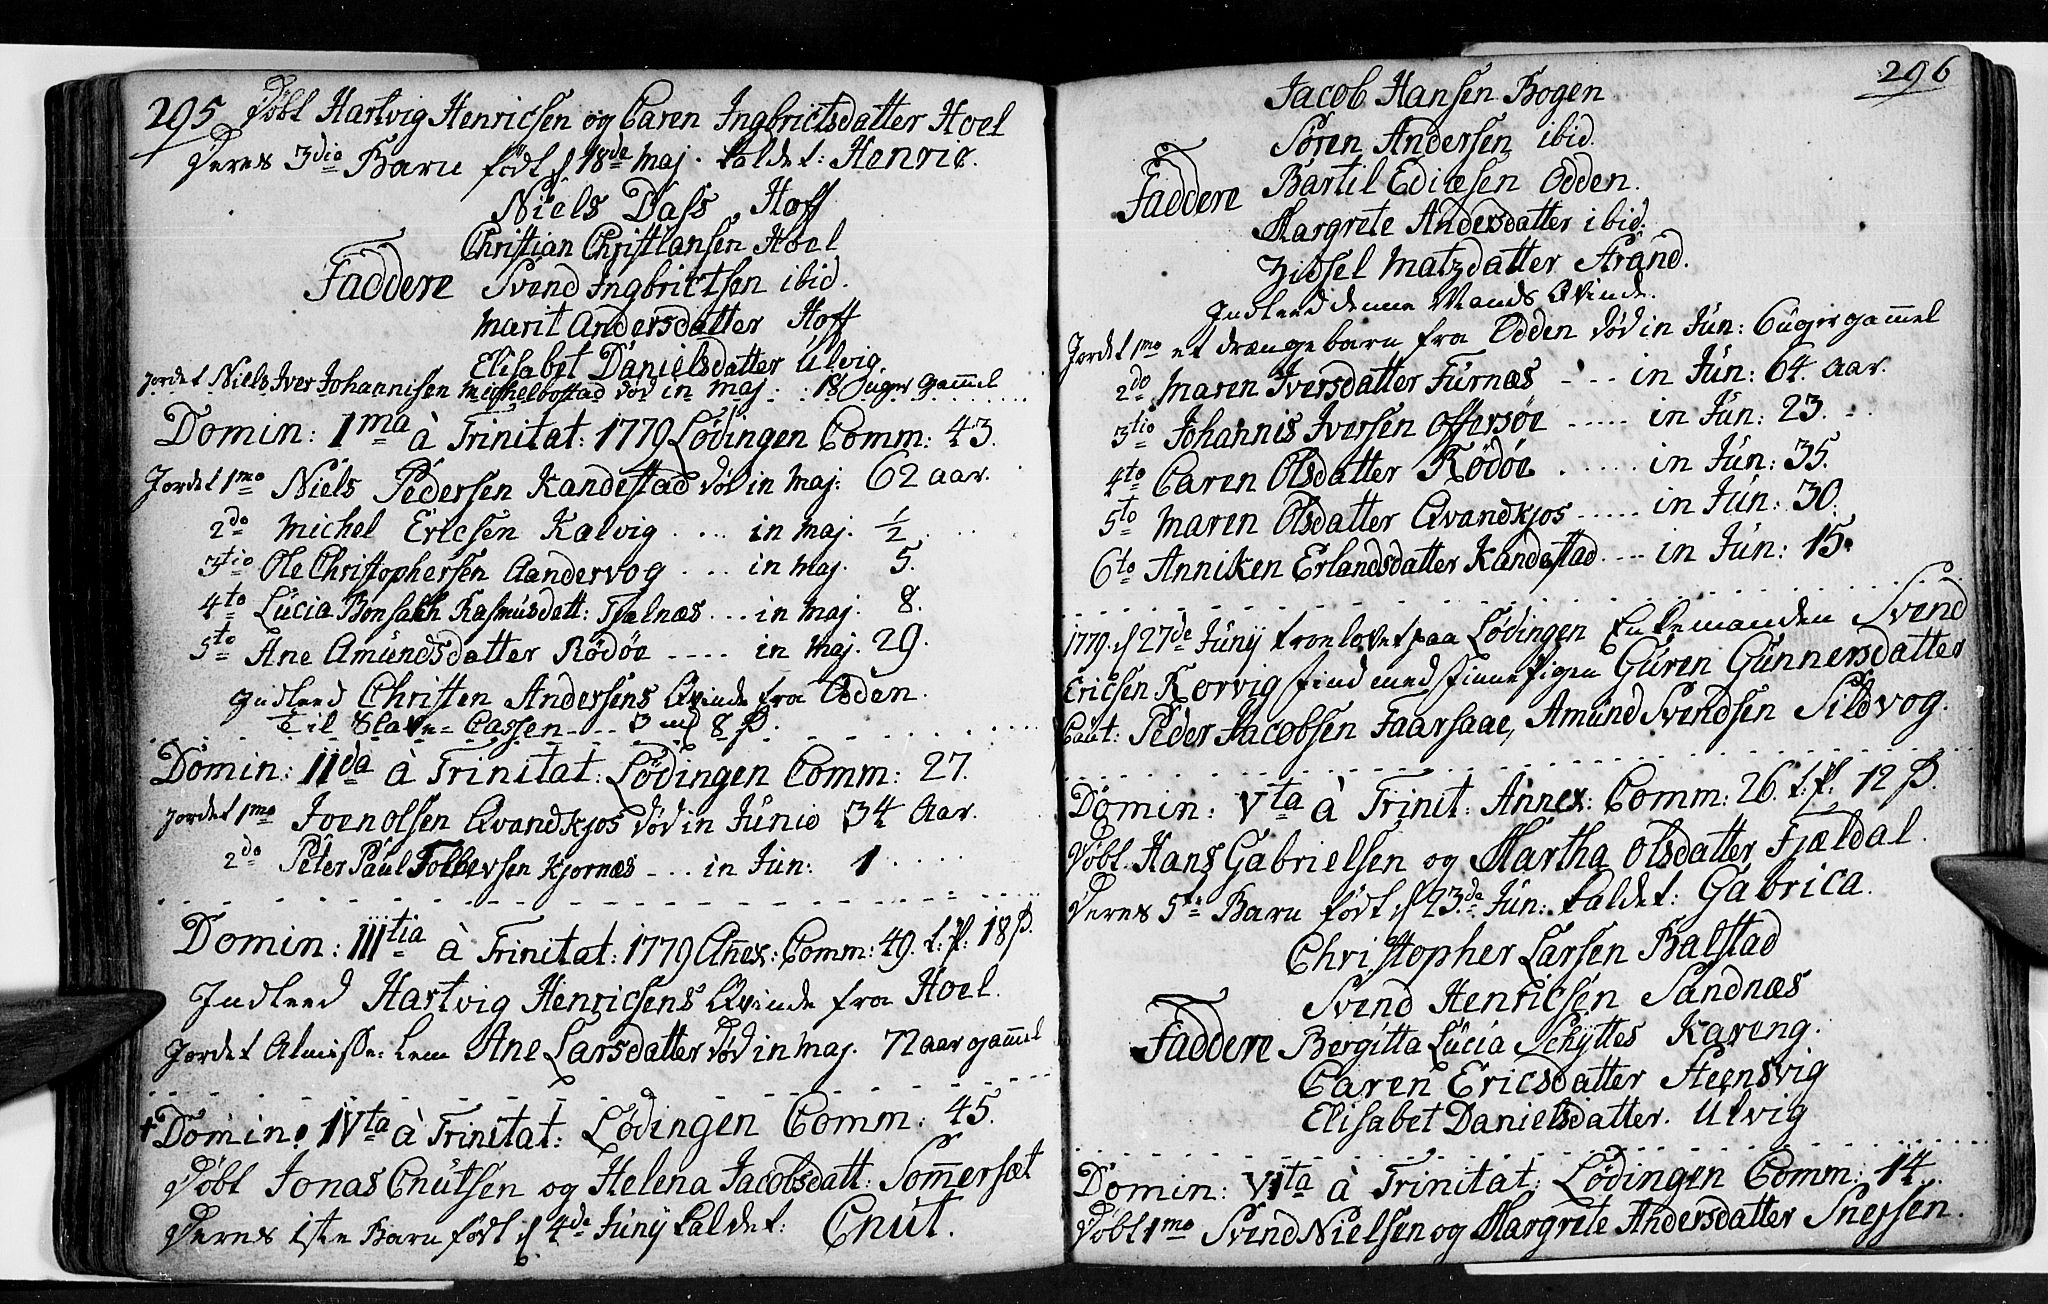 295 Døbt Hartvig Henricsen og Caren Ingbrictsdatter Hoel
Deres 3die Barn født d 18de Maj. kaldet: Henric.
Niels Dass Hoff
Christian Christiansen Hoel
Faddere Svend Ingbrictsen ibid.
Marit Andersdatter Hoff
Elisabet Danielsdatter Ulvig.
Jordet Niels Iver Johannisen Michelbostad død in Maj. 18 Uger gammel
Domin: 1ma à Trinitat: 1779 Lødingen Comm: 43.
Jordet 1mo Niels Pedersen Kandestad død in Maj: 62 aar.
2do Michel Ericsen Kalvig .... in Maj. 1/2
3tio Ole Christophersen Aandervog ... in Maj. 5.
4to Lucia Bonsach Rasmusdatt: Tjælnæs ... in Maj. 8.
5to Ane Amundsdatter Rødøe .... in Maj. 29.
Indleed Christen Andersens Qvinde fra Odden.
til Slave-Cassen ... 3 mk 8 ß.
Domin: IIda à Trinitat: Lødingen Comm: 27.
Jordet 1mo Joen Olsen Qvandkjos død in Junio 34 Aar.
2do Peter Paul Tollevsen Kjornæs ... in Jun: 1
Domin: IIItia à Trinitat: 1779 Añex: Comm: 49. t. pf: 18 ß.
Indleed Hartvig Henricsens Qvinde fra Hoel.
Jordet Almisse-Lem Ane Larsdatter død in Maj. 72 aar gammel
+ Domin: IVta à Trinitat: Lødingen Comm: 45.
Døbt Jonas Cnutsen og Helena Jacobsdatt: Sommersæt
Deres 1ste Barn født d 4de Junij kaldet: Cnut.
296
Jacob Hansen Bogen
Søren Andersen ibid.
Faddere Bartil Ediæsen Odden.
Margrete Andersdatter ibid:
Zidsel Matzdatter Strand.
Indleed denne Mands Qvinde.
Jordet 1mo et drænge barn fra Odden død in Jun: 6 uger gammel
2do Maren Iversdatter Furnæs .... in Jun: 64. aar.
3tio Johannis Iversen Offersøe ..... in Jun: 23.
4to Caren Olsdatter Rødøe ...... in Jun: 35.
5to Maren Olsdatter Qvandkjos ..... in Jun: 30.
6to Anniken Erlandsdatter Kandestad ... in Jun: 15.
1779. d 27de Junij troelovet paa Lødingen Enkemanden Svend
Ericsen Korvig find med finnepigen Guren Gunnersdatter
Caut: Peder Jacobsen Faarsaae, Amund Svendsen Sildvog.
Domin: Vta à Trinit: Annex: Comm: 26. t. pf: 12 ß.
Døbt Hans Gabrielsen og Martha Olsdatter Fjældal.
Deres 5te Barn født d 23de Jun: kaldet: Gabrica.
Christopher Larsen Balstad
Svend Henricsen Sandnæs
Faddere Bergitta Lucia Schyttes Kareng.
Caren Ericsdatter Steensvig
Elisabet Danielsdatter. Ulvig
Domin: VIta à Trinitat: Lødingen Comm: 14.
Døbt 1mo Svend Nielsen og Margrete Andersdatter Snejsen.